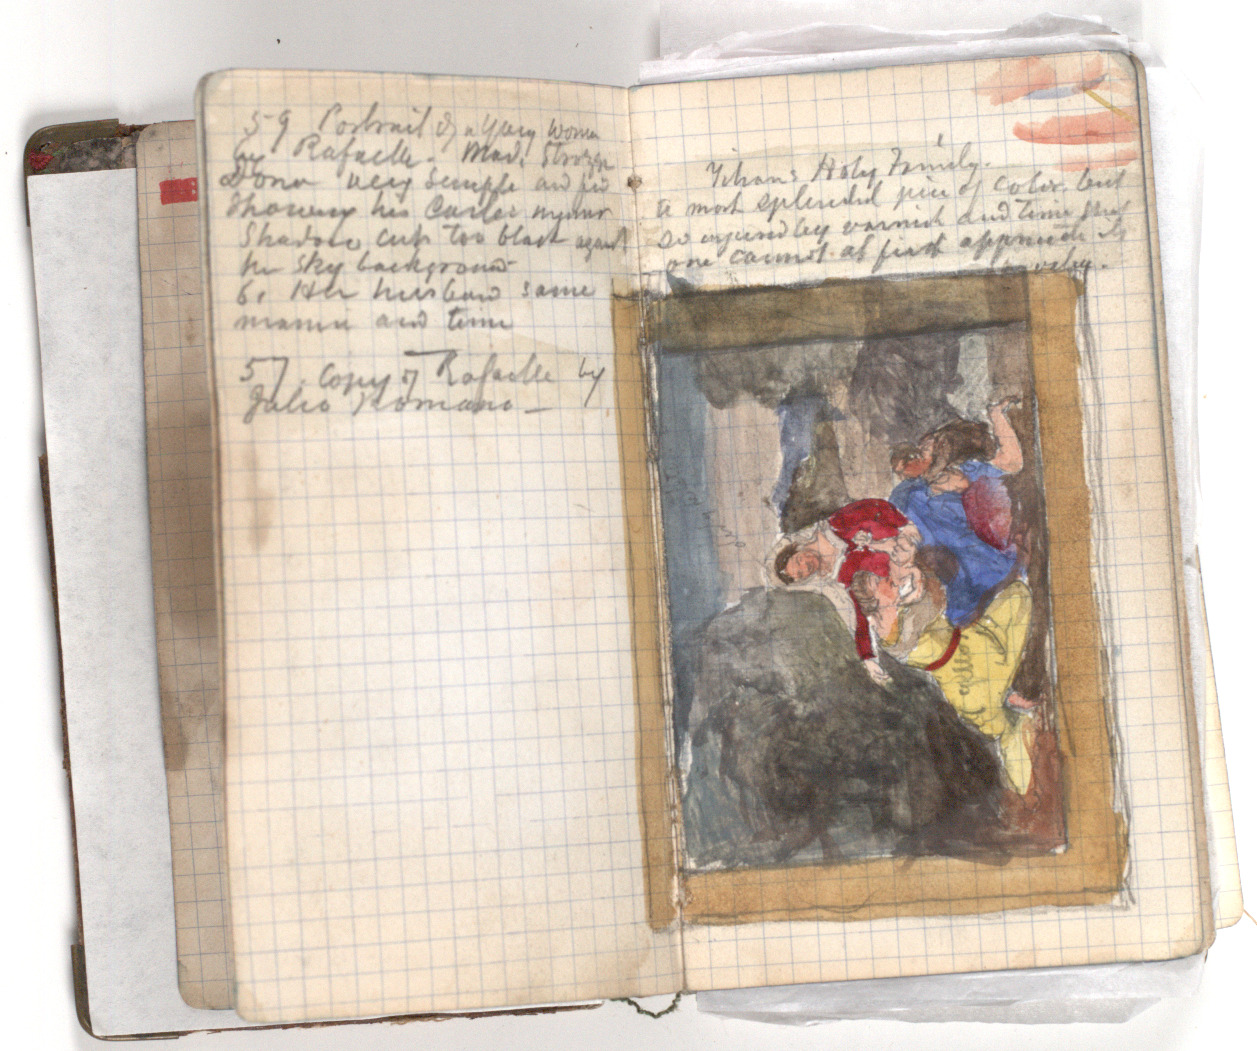 59 Portrait of a Young Woman
by Rafaelle. Mad. Strozzi
Dona very simple and fine
showing his earlier manner
Shadow cuts too black against
the sky background
61 Her husband same
manner and time
57. Copy of Rafaelle by
Julio Romano —
Titians Holy Family.
a most splendid piece of color, but
so injured by varnish and time that
one cannot at first appreciate its
value.
yellow